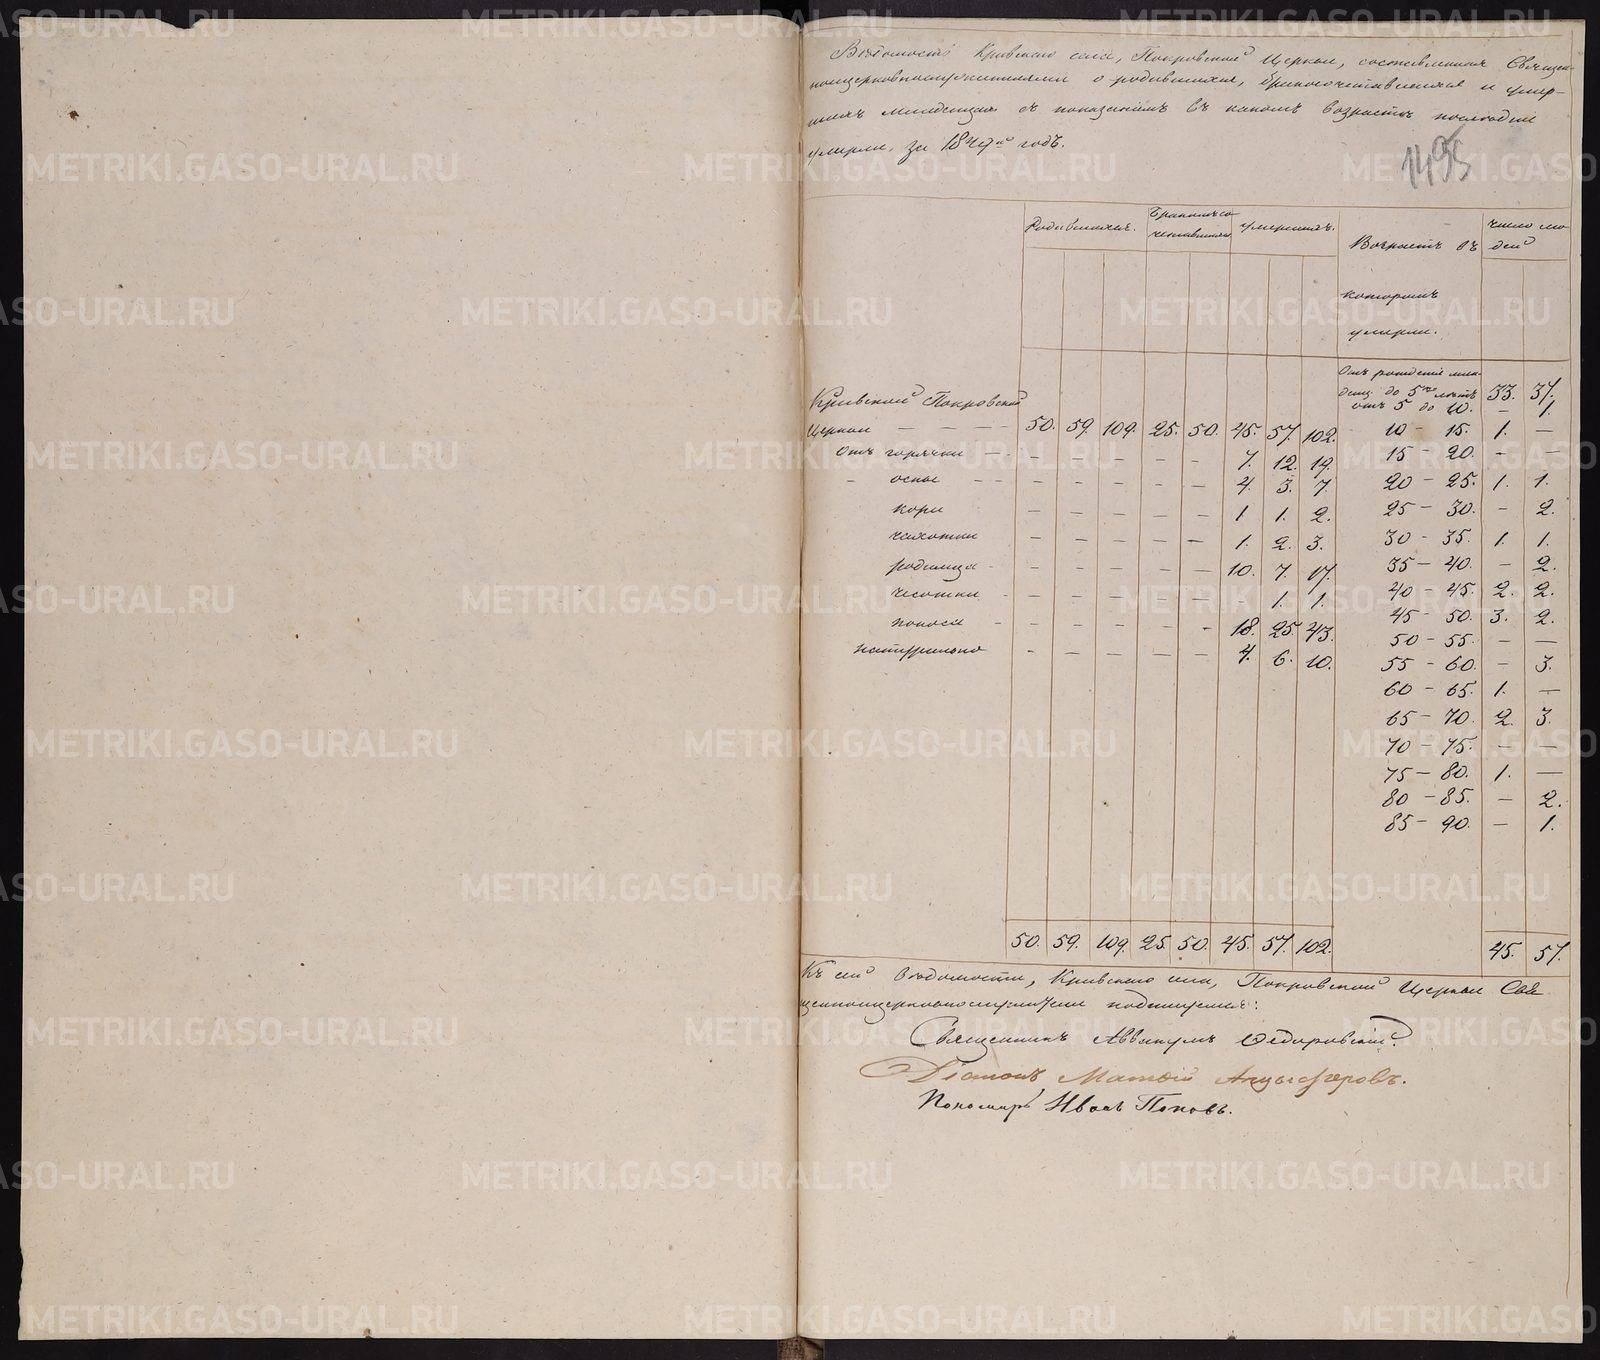 Ведомость Кривскаго села, Покровской Церкви, составленная Священ-
ноцерковнослужителями о родившихся, бракосочетавшихся и умер-
шихъ младенцахъ съ показаніемъ въ какомъ возрастѣ последние
умерли, за 1847й годъ.
1495
Родившихся.
Бракомъ со-
четавшихся
умершихъ.
Возрастъ въ
которомъ
умерли.
число лю-
дей
Кривской Покровской
Церкви — — — — 50. 59. 109. 25. 50. 45. 57. 102.
Отъ горячки — — — — — — 7. 12. 19.
— оспы — — — — — — 4. 3. 7.
кори — — — — — 1. 1. 2.
чахотки — — — — — 1. 2. 3.
родимца — — — — — — 10. 7. 17.
чесотки — — — — — — - 1. 1.
поноса — — — — — — 18. 25. 43.
натурально — — — — — 4. 6. 10.
Отъ рожденія мла-
денц. до 5ти лѣтъ 33. 37.
отъ 5 до 10. — 1.
10 — 15. 1. —
15 — 20. — —
20 — 25. 1. 1.
25 — 30. — 2.
30 — 35. 1. 1.
35 — 40. — 2.
40 — 45. 2. 2.
45 — 50. 3. 2.
50 — 55. — —
55 — 60. — 3.
60 — 65. 1. —
65 — 70. 2. 3.
70 — 75. — —
75 — 80. 1. —
80 — 85. — 2.
85 — 90. — 1.
50. 59. 109. 25. 50. 45. 57. 102. 45. 57.
Къ сей Ведомости, Кривскаго села, Покровской Церкви Свя
щенноцерковнослужители подписуемся:
Священникъ Аввакумъ Федоровскій.
Діаконъ Матѳій
Пономарь Иванъ Поповъ.
METRIKI.GASO-URAL.RU